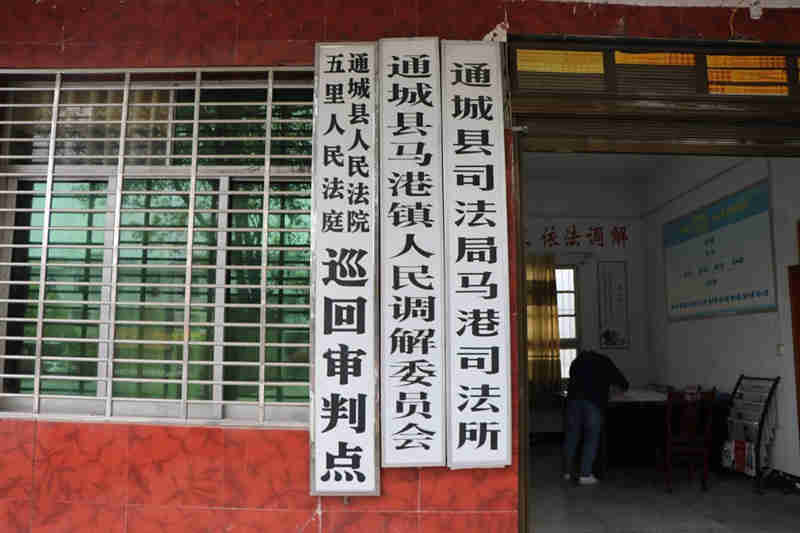 通城县司法局马港司法所
通城县马港镇人民调解委员会
通城县人民法院
五里人民法庭
巡回审判点
依法调解